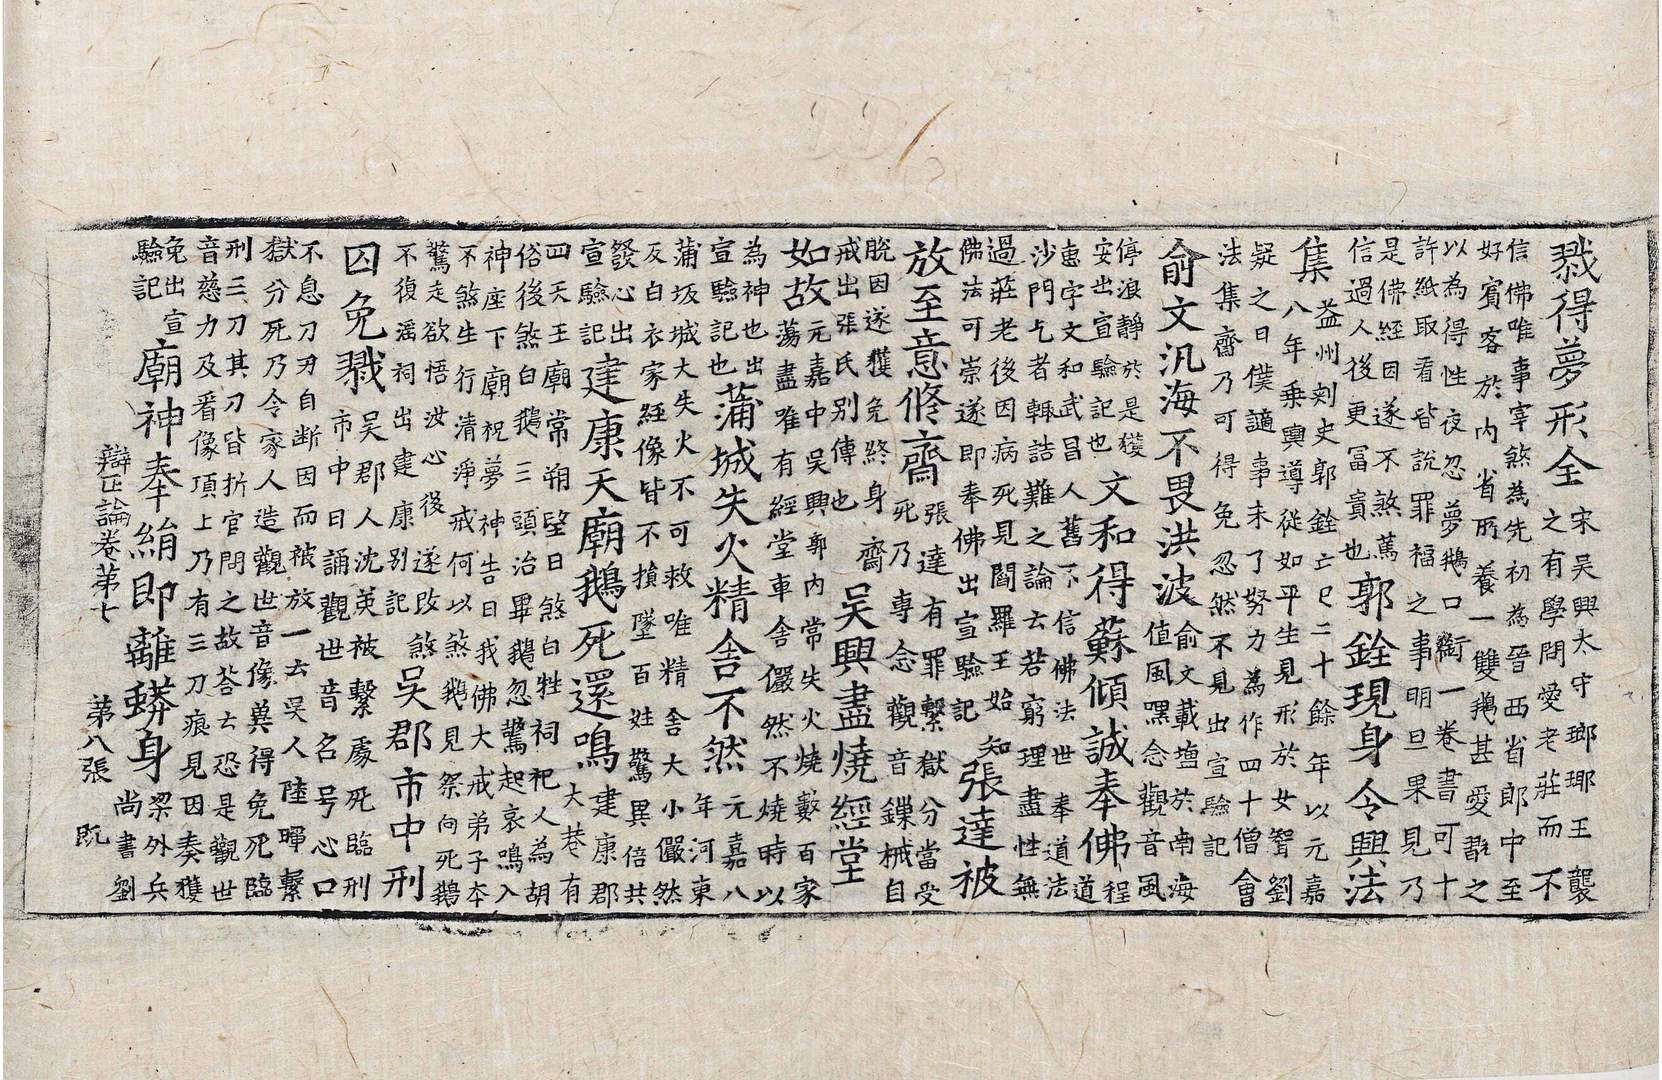 戮得夢形全宋吳興太守瑯瑘王襲
之有學問愛老莊而不
信佛唯事宰煞為先初為晉西省郎中至
好賓客於內省所養一雙鵝甚愛翫之
以為得性夜忽夢鵝口銜一卷書可十
許紙取看皆說罪福之事明旦果見乃
是佛經因遂不煞篤
信過人後更冨貴也郭銓現身令興法
集益州刾史郭銓亡已二十餘年以元嘉
八年乗輿導從如平生見形於女聟劉
疑之曰僕謫事未了努力為作四十僧會
法集齋乃可得免忽然不見出宣驗記
俞文汎海不畏洪波俞文載塩於南海
值風嘿念觀音風
停浪靜於是獲
安出宣驗記也文和得蘇傾誠奉佛程
道
惠字文和武昌人舊不信佛法世奉道法
沙門乞者輙詰難之論云若窮理盡性無
過莊老後因病死見閻羅王始知
佛法可崇遂即奉佛出宣驗記張達被
放至意修齋張達有罪繫獄分當受
死乃專念觀音鏁械自
脫因遂獲免終身齋
戒出張氏別傳也吳興盡燒經堂
如故元嘉中吳興郭內常失火燒數百家
蕩盡唯有經堂車舍儼然不燒時以
為神也出
宣驗記也蒲城失火精舍不然元嘉八
年河東
蒲坂城大失火不可救唯精舍大小儼然
及白衣家經像皆不損墜百姓驚異倍共
發心出
宣驗記建康天廟鵝死還鳴建康郡
大巷有
四天王廟常朔望日煞白牲祠祀人為胡
俗後煞白鵝三頭治畢鵝忽驚起哀鳴入
神座下廟祝夢神告曰我佛大戒弟子本
不煞生行清淨戒何以煞鵝見祭向死鵝
驚走欲悟汝心後遂改煞
不復滛祠出建康別記吳郡市中刑
囚免戮吳郡人沈英被繫處死臨刑
市中日誦觀世音名号心口
不息刀刃自断因而被放一云吳人陸暉繫
獄分死乃令家人造觀世音像兾得免死臨
刑三刀其刀皆折官問之故荅云恐是觀世
音慈力及看像項上乃有三刀痕見因奏獲
免出宣
驗記廟神奉絹即離蟒身梁外兵
尚書劉
辯正論卷第七 第八張 既